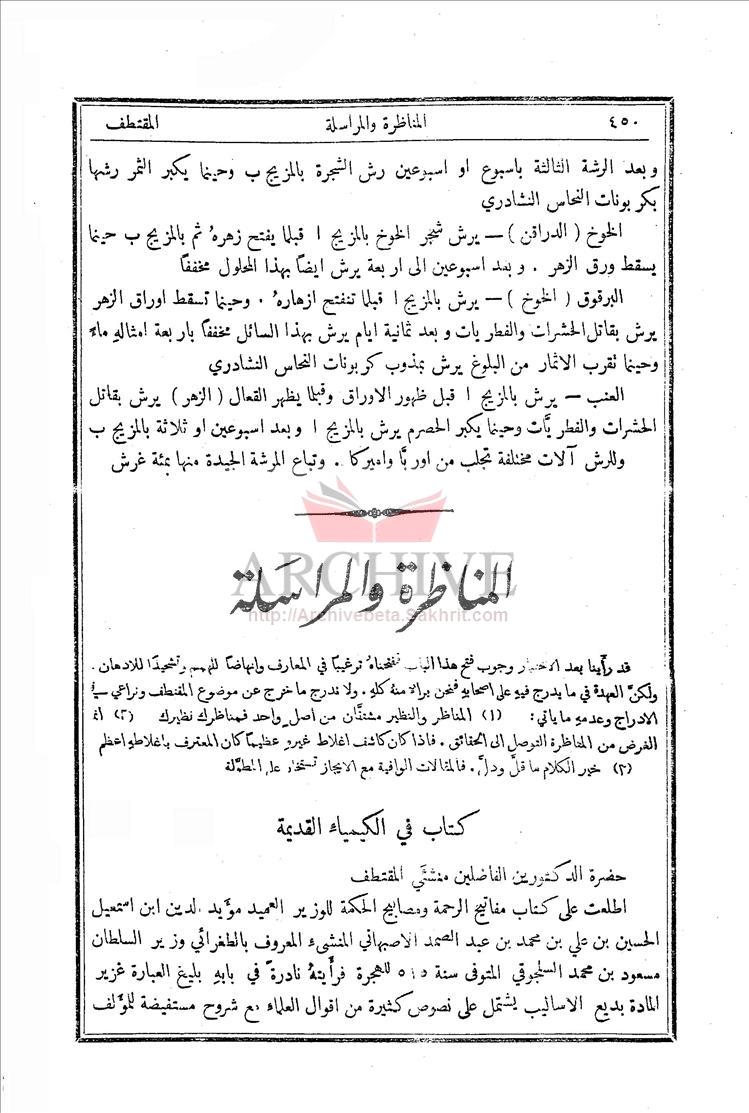 ٤٥٠ المناظرة والمراسلة المقتطف
وبعد الرشة الثالثة باسبوع او اسبوعين رش الشجرة بالمزيج ب وحينما يكبر الثمر رشها
بكربونات النحاس النشادري
الخوخ ( الدراقن ) — يرش شجر الخوخ بالمزيج ا قبلما يفتح زهرهُ ثم بالمزيج ب حينما
يسقط ورق الزهر . وبعد اسبوعين الى اربعة يرش ايضاً بهذا المحلول مخففاً
البرقوق ( الخوخ ) — يرش بالمزيج ا قبلما تنفتح ازهارهُ . وحينما تسقط اوراق الزهر
يرش بقاتل الحشرات والفطريات وبعد ثمانية ايام يرش بهذا السائل مخففاً باربعة امثالهِ ماءً
وحينما تقرب الاثمار من البلوغ يرش بمذوب كربونات النحاس النشادري
العنب — يرش بالمزيج ا قبل ظهور الاوراق وقبلما يظهر القعال ( الزهر ) يرش بقاتل
الحشرات والفطريَّات وحينما يكبر الحصرم يرش بالمزيج ا وبعد اسبوعين او ثلاثة بالمزيج ب
وللرش آلات مختلفة تجلب من اوربَّا واميركا . وتباع المرشة الجيدة منها بمئة غرش
ARCHIVE
المناظرة والمراسَلة
http://Archivebeta.Sakhrit.com
قد رأينا بعد الاختبار وجوب فتح هذا الباب ففتحناهُ ترغيبًا في المعارف وانهاضًا للهمم وتشحيذًا للاذهان .
ولكنَّ العهدة في ما يدرج فيهِ على اصحابهِ فنحن برالا منهُ كلهِ . ولا ندرج ما خرج عن موضوع المقتطف ونراعي في
الادراج وعدمهِ ما ياتي : (١) المناظر والنظير مشتقَّان من اصل واحد فمناظرك نظيرك (٢) انما
الغرض من المناظرة التوصل الى الحقائق . فاذا كان كاشف اغلاط غيرهِ عظيمًا كان المعترف باغلاطهِ اعظم
(٣) خير الكلام ما قلَّ ودلَّ . فالمقالات الوافية مع الايجاز تستخار على المطوَّلة
كتاب في الكيمياء القديمة
حضرة الدكتورين الفاضلين منشئَي المقتطف
اطلعت على كتاب مفاتيح الرحمة ومصابيح الحكمة للوزير العميد مؤيد الدين ابن اسمعيل
الحسين بن علي بن محمد بن عبد الصمد الاصبهاني المنشىء المعروف بالطغرائي وزير السلطان
مسعود بن محمد السلجوقي المتوفى سنة ٥١٥ للهجرة فرأيتهُ نادرةً في بابهِ بليغ العبارة غزير
المادة بديع الاساليب يشتمل على نصوص كثيرة من اقوال العلماء مع شروح مستفيضة للمؤلف